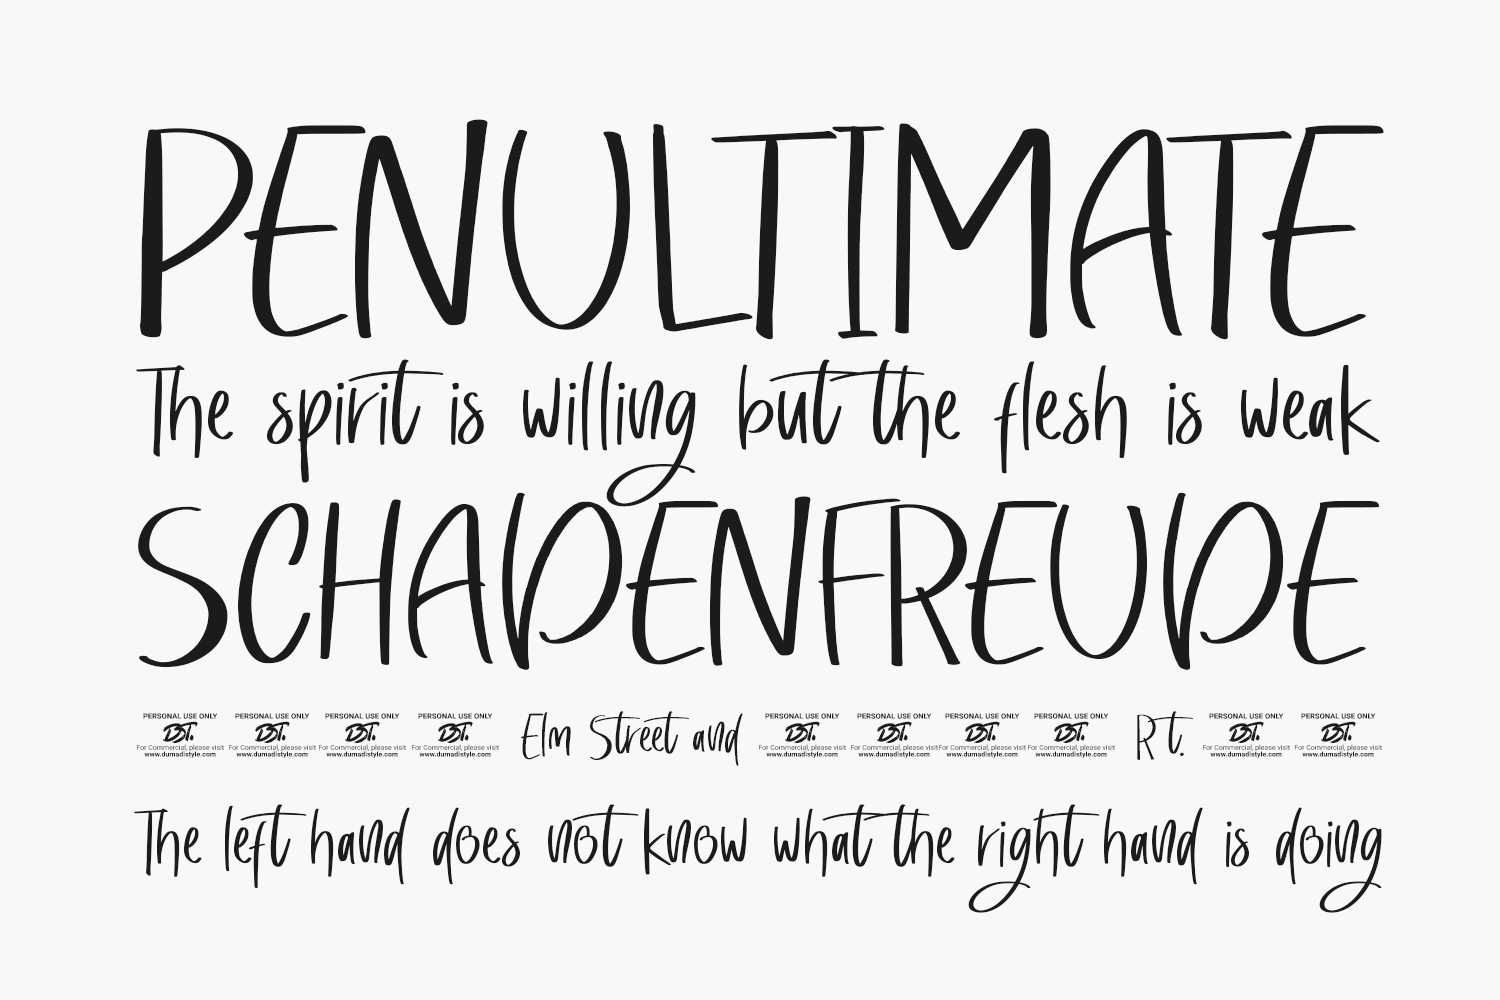 PENULTIMATE
The spirit is willing but the flesh is weak
SCHADENFREUDE
PERSONAL USE ONLY PERSONAL USE ONLY PERSONAL USE ONLY PERSONAL USE ONLY Elm Street and PERSONAL USE ONLY PERSONAL USE ONLY PERSONAL USE ONLY PERSONAL USE ONLY Rt. PERSONAL USE ONLY PERSONAL USE ONLY
DST. DST. DST. DST. DST. DST. DST. DST. DST. DST.
For Commercial, please visit For Commercial, please visit For Commercial, please visit For Commercial, please visit For Commercial, please visit For Commercial, please visit For Commercial, please visit For Commercial, please visit For Commercial, please visit For Commercial, please visit
www.dumadistyle.com www.dumadistyle.com www.dumadistyle.com www.dumadistyle.com www.dumadistyle.com www.dumadistyle.com www.dumadistyle.com www.dumadistyle.com www.dumadistyle.com www.dumadistyle.com
The left hand does not know what the right hand is doing